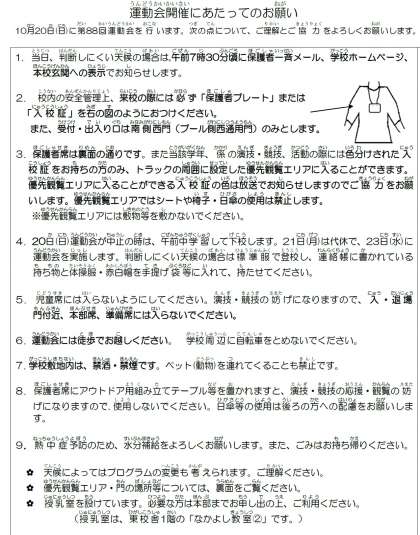 運動会開催にあたってのお願い
10月20日(日)に第88回運動会を行います。次の点について、ご理解とご協力をよろしくお願いします。
1. 当日、判断しにくい天候の場合は、午前7時30分頃に保護者一斉メール、学校ホームページ、
本校公開への表示でお知らせします。
2. 校内の安全管理上、来校の際には必ず「保護者プレート」または
「入校証」を右の図のようにおつけください。
また、受付・出入り口は南側西門（プール側西通用門）のみとします。
3. 保護者席は裏面の通りです。また当該学年、係の演技・競技、活動の際には色分けされた入
校証をお持ちの方のみ、トラックの周囲に設定した優先観覧エリアに入ることができます。
優先観覧エリアに入ることができる入校証の色は放送でお知らせしますのでご協力をお願
いします。優先観覧エリアではシートや椅子・日傘の使用は禁止します。
※優先観覧エリアには敷物等を敷かないでください。
4. 20日(日)運動会が中止の時は、午前中学習して下校します。21日(月)は代休で、23日(水)に
運動会を実施します。判断しにくい天候の場合は標準服で登校し、連絡帳に書かれている
持ち物と体操服・赤白帽を手提げ袋等に入れて、持たせてください。
5. 児童席には入らないようにしてください。演技・競技の妨げになりますので、入・退場
門付近、本部席、準備席には入らないでください。
6. 運動会には徒歩でお越しください。学校周辺に自転車をとめないでください。
7. 学校敷地内は、禁酒・禁煙です。ペット(動物)を連れてくることも禁止です。
8. 保護者席にアウトドア用組み立てテーブル等を置かれますと、演技・競技の応援・観覧の妨
げになりますので、使用しないでください。日傘等の使用は後ろの方への配慮をお願いしま
す。
9. 熱中症予防のため、水分補給をよろしくお願いします。また、ごみはお持ち帰りください。
✿ 天候によってはプログラムの変更も考えられます。ご理解ください。
✿ 優先観覧エリア・門の場所等については、裏面をご覧ください。
✿ 授乳室を設けています。必要な方は本部までお申し出の上、ご利用ください。
（授乳室は、東校舎1階の「なかよし教室②」です。）